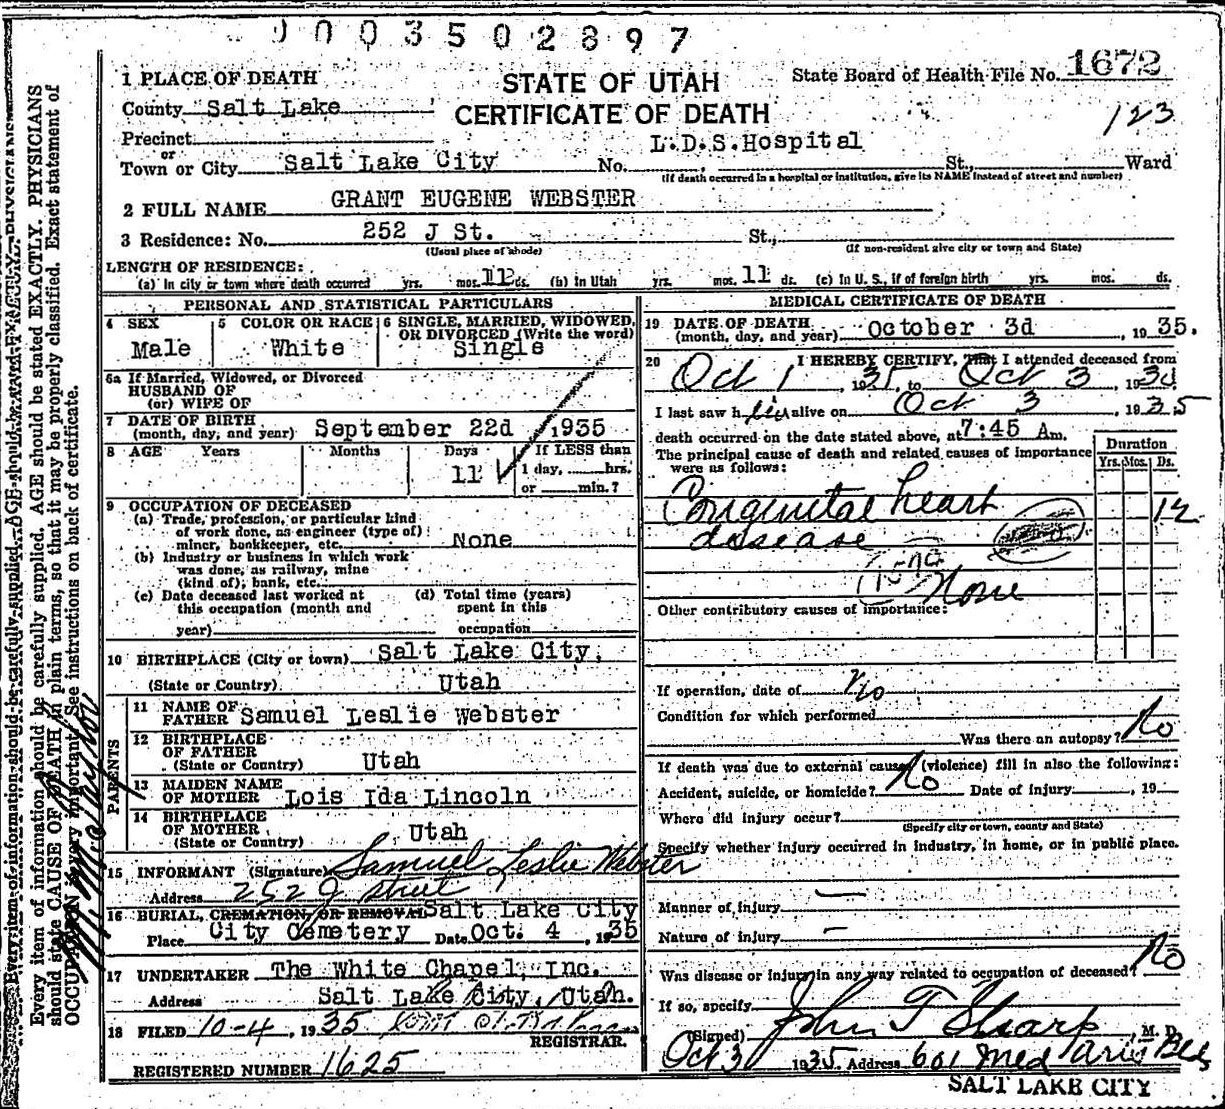 0003502897
1 PLACE OF DEATH
STATE OF UTAH
State Board of Health File No. 1672
County Salt Lake
CERTIFICATE OF DEATH
123
Precinct
L.D.S.Hospital
or
Town or City Salt Lake City No. St., Ward
(If death occurred in a hospital or institution, give its NAME instead of street and number)
2 FULL NAME GRANT EUGENE WEBSTER
3 Residence: No. 252 J St. St.,
(Usual place of abode) (If non-resident give city or town and State)
LENGTH OF RESIDENCE:
(a) In city or town where death occurred yrs. mos. 11 ds. (b) In Utah yrs. mos. 11 ds. (c) In U. S., if of foreign birth yrs. mos. ds.
PERSONAL AND STATISTICAL PARTICULARS
4 SEX 5 COLOR OR RACE 6 SINGLE, MARRIED, WIDOWED,
OR DIVORCED (Write the word)
Male White Single
6a If Married, Widowed, or Divorced
HUSBAND OF
(or) WIFE OF
7 DATE OF BIRTH
(month, day, and year) September 22d 1935
8 AGE Years Months Days If LESS than
11 1 day, hrs.
or min.?
9 OCCUPATION OF DECEASED
(a) Trade, profession, or particular kind
of work done, as engineer (type of)
miner, bookkeeper, etc. None
(b) Industry or business in which work
was done, as railway, mine
(kind of); bank, etc.
(c) Date deceased last worked at (d) Total time (years)
this occupation (month and spent in this
year) occupation
10 BIRTHPLACE (City or town) Salt Lake City,
(State or Country) Utah
PARENTS
11 NAME OF
FATHER Samuel Leslie Webster
12 BIRTHPLACE
OF FATHER
(State or Country) Utah
13 MAIDEN NAME
OF MOTHER Lois Ida Lincoln
14 BIRTHPLACE
OF MOTHER
(State or Country) Utah
15 INFORMANT (Signature) Samuel Leslie Webster
Address 252 J street
16 BURIAL, CREMATION, OR REMOVAL Salt Lake City
Place City Cemetery Date Oct. 4, 1935
17 UNDERTAKER The White Chapel, Inc.
Address Salt Lake City, Utah.
18 FILED 10-4, 1935
REGISTRAR.
REGISTERED NUMBER 1625
MEDICAL CERTIFICATE OF DEATH
19 DATE OF DEATH
(month, day, and year) October 3d, 1935.
20 I HEREBY CERTIFY, That I attended deceased from
Oct 1, 1935, to Oct 3, 1935
I last saw him alive on Oct 3 1935
death occurred on the date stated above, at 7:45 Am.
The principal cause of death and related causes of importance
were as follows:
Duration
Yrs. Mos. Ds.
Congenital heart 12
disease
None
Other contributory causes of importance:
If operation, date of no
Condition for which performed
Was there an autopsy? No
If death was due to external cause (violence) fill in also the following:
Accident, suicide, or homicide? No Date of injury , 19
Where did injury occur?
(Specify city or town, county and State)
Specify whether injury occurred in industry, in home, or in public place.
Manner of injury —
Nature of injury —
Was disease or injury in any way related to occupation of deceased? No
If so, specify
(Signed) John F Sharp, M. D.
Oct 3 1935. Address 601 Med Arts Bldg
SALT LAKE CITY
Every item of information should be carefully supplied. AGE should be stated EXACTLY. PHYSICIANS
should state CAUSE OF DEATH in plain terms, so that it may be properly classified. Exact statement of
OCCUPATION is very important. See instructions on back of certificate.